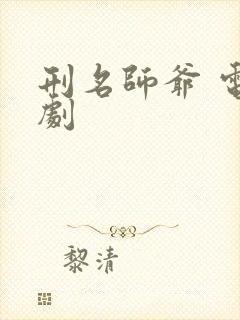 刑名師爺 電
劇
黎清